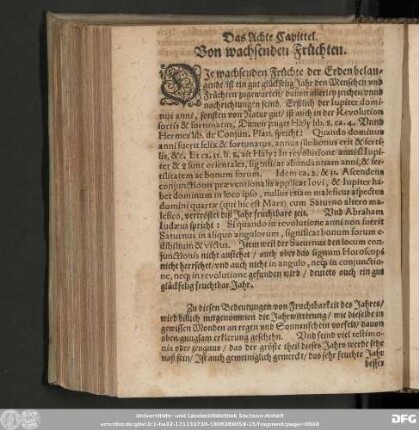 Das Achte Capittel.
Von wachsenden Früchten.
DJe wachsenden Früchte der Erden belan-
gende / ist ein gut glückselig Jahr den Menschen vnd
Früchten zugewarten / dauon allerley zeichen / vnnd
nachrichtungen seind. Erstlich der Iupiter domi-
nus anni, sonsten von Natur gut / ist auch in der Revolution
fortis & fortunatus, Dauon zuget Haly lib. 8. ca. 4. Vnnd
Hermes lib. de Conjun. Plan. spricht: Quando dominus
anni fuerit felix & fortunatus, annus ille bonus erit & ferti-
lis, &c. Et ca. 31. li. 8. ait Haly: In revolutione anni si Iupi-
ter & ♀ sunt orientales, significat abundantiam anni, & fer-
tilitatem ac bonum forum. Idem ca. 2. & 31. Ascendens
conjunctionis præventionalis applicat Iovi, & Iupiter ha-
bet dominum in loco ipso, nullus etiam maleficus aspectus
domini quartæ (qui hic est Mars) cum Saturno altero ma-
lefico, vertröstet diß Jahr fruchtbare zeit. Vnd Abraham
Iudæus spricht: Si quando in revolutione anni non fuerit
Saturnus in aliquo angulorum, significat bonum forum e-
dibilium & victus. Item weil der Saturnus den locum con-
junctionis nicht ansiehet / auch vber das signum Horoscopi
nicht herrschet / vnd auch nicht in angulo, neq; in conjunctio-
ne, neq; in revolutione gefunden wird / deutets auch ein gut
glückselig fruchtbar Jahr.
Zu diesen Bedeutungen von Fruchtbarkeit des Jahres /
wird billich mitgenommen die Jahrwitterung / wie dieselbe in
gewissen Monden an regen vnd Sonnenschein vorfelt / dauon
oben gnugsam erklerung geschehen. Vnd seind viel testimo-
nia oder zeugnus / das der größte theil dieses Jahrs werde sehr
naß sein / Ist auch gemeiniglich gemerckt / das sehr feuchte Jahr
besser
Universitäts- und Landesbibliothek Sachsen-Anhalt